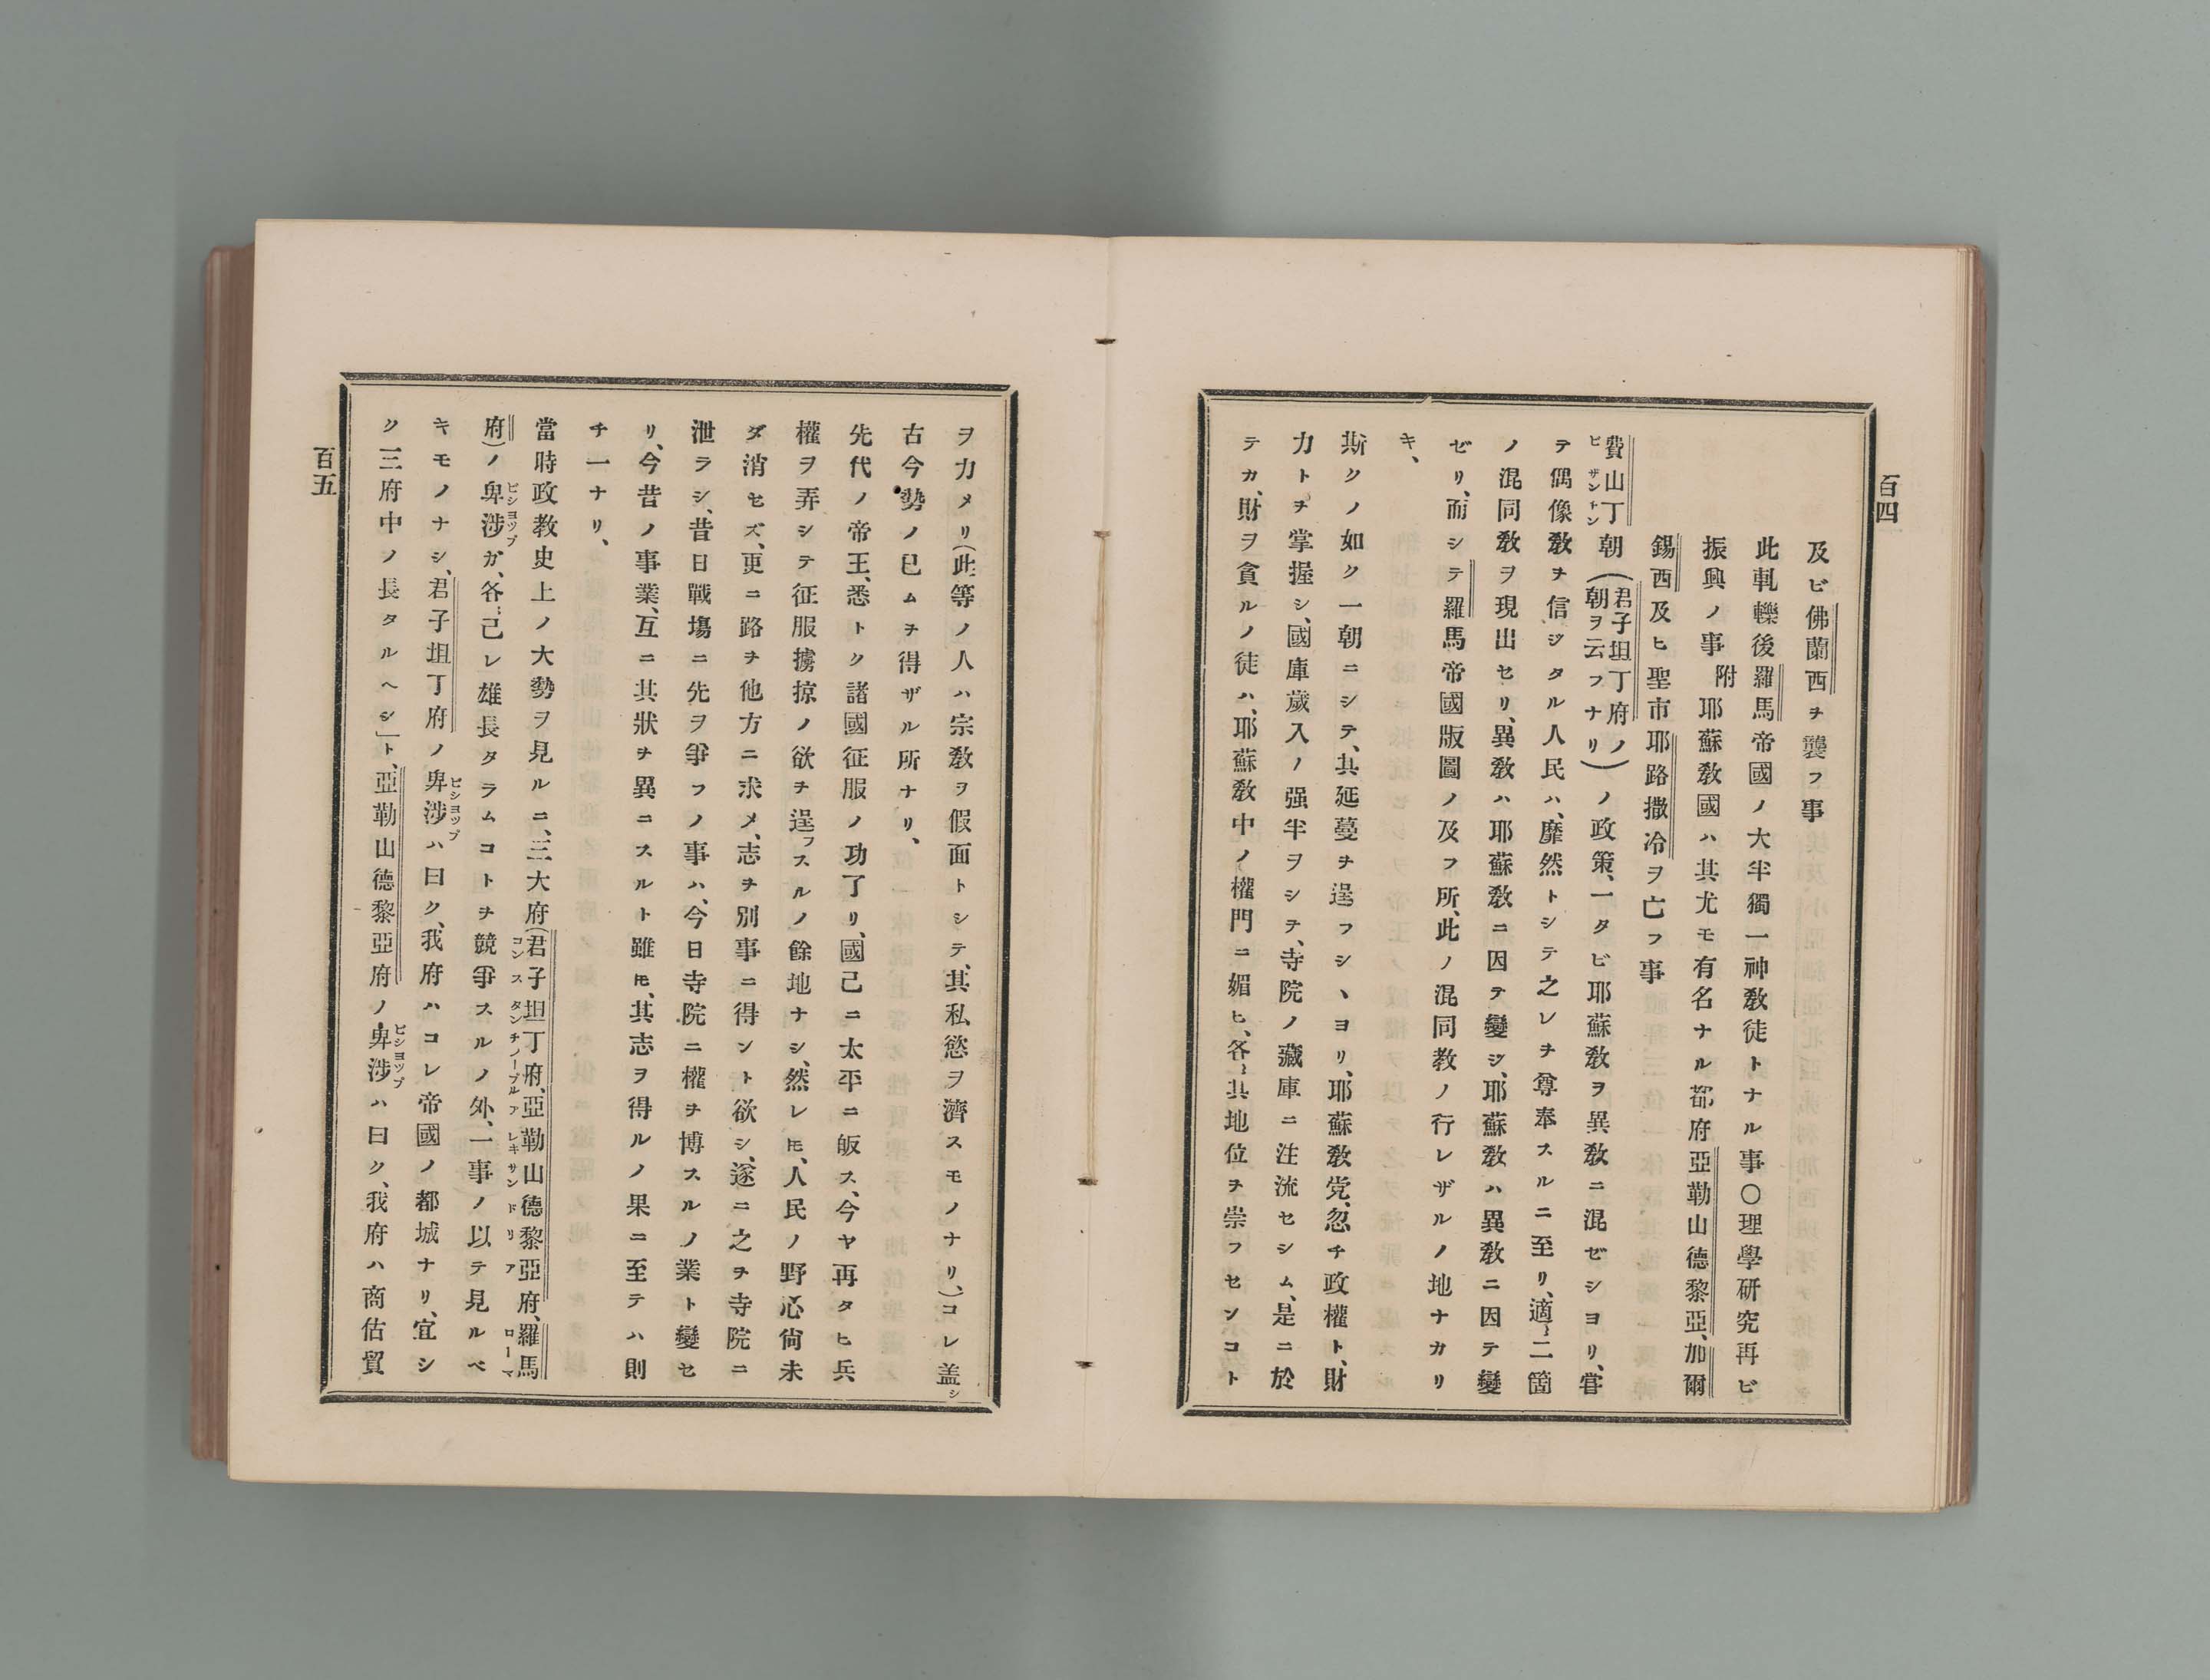 百四
及ビ佛蘭西ヲ襲フ事
此軋轢後羅馬帝國ノ大半獨一神敎徒トナル事○理學硏究再ビ
振興ノ事 附 耶蘇敎國ハ其尤モ有名ナル都府亞勒山德黎亞、加爾
錫西及ヒ聖市耶路撒冷ヲ亡フ事
費山丁朝(君子坦丁府ノ朝ヲ云フナリ)ノ政策、一タビ耶蘇敎ヲ異敎ニ混ゼシヨリ、甞
ビザンチン
テ偶像敎ヲ信ジタル人民ハ、靡然トシテ之レヲ尊奉スルニ至リ、適〻二箇
ノ混同敎ヲ現出セリ、異敎ハ耶蘇敎ニ因テ變ジ、耶蘇敎ハ異敎ニ因テ變
ゼリ、而シテ羅馬帝國版圖ノ及フ所、此ノ混同敎ノ行レザルノ地ナカリ
キ、
斯クノ如ク一朝ニシテ、其延蔓ヲ逞フシヽヨリ、耶蘇敎党、忽チ政權ト、財
力トヲ掌握シ、國庫歲入ノ强半ヲシテ、寺院ノ藏庫ニ注流セシム、是ニ於
テカ、財ヲ貪ルノ徒ハ、耶蘇敎中ノ權門ニ媚ヒ、各〻其地位ヲ崇フセンコト
ヲ力メリ(此等ノ人ハ宗敎ヲ假面トシテ、其私慾ヲ濟スモノナリ、)コレ盖シ
古今勢ノ已ムヲ得ザル所ナリ、
先代ノ帝王、悉トク諸國征服ノ功了リ、國己ニ太平ニ皈ス、今ヤ再タヒ兵
權ヲ弄シテ征服擄掠ノ欲ヲ逞フスルノ餘地ナシ、然レ𪜈、人民ノ野心尙未
ダ消セズ、更ニ路ヲ他方ニ求メ、志ヲ別事ニ得ント欲シ、遂ニ之ヲ寺院ニ
泄ラシ、昔日戰塲ニ先ヲ爭フノ事ハ、今日寺院ニ權ヲ博スルノ業ト變セ
リ、今昔ノ事業、互ニ其狀ヲ異ニスルト雖𪜈、其志ヲ得ルノ果ニ至テハ則
チ一ナリ、
當時政敎史上ノ大勢ヲ見ルニ、三大府(君子坦丁府、亞勒山德黎亞府、羅馬
コンスタンチノープル アレキサンドリア ローマ
府)ノ卑涉ガ、各〻己レ雄長タラムコトヲ競爭スルノ外、一事ノ以テ見ルベ
ビシヨツプ
キモノナシ、君子坦丁府ノ卑涉ハ曰ク、我府ハコレ帝國ノ都城ナリ、宜シ
ビシヨツプ
ク三府中ノ長タルヘシ」ト、亞勒山德黎亞府ノ卑涉ハ曰ク、我府ハ商估貿
ビシヨツプ
百五